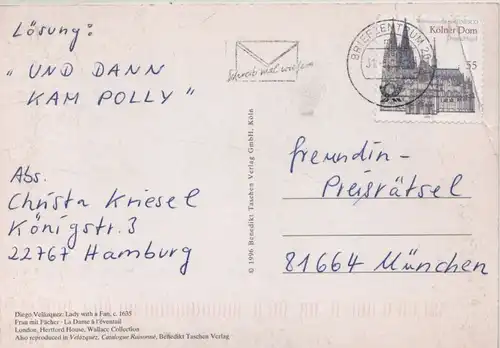 Lösung:
"UND DANN
KAM POLLY"
Abs.
Christa Kriesel
Königstr. 3
22767 Hamburg
Diego Velázquez: Lady with a Fan, c. 1635
Frau mit Fächer · La Dame à l'éventail
London, Hertford House, Wallace Collection
Also reproduced in Velázquez, Catalogue Raisonné, Benedikt Taschen Verlag
© 1996 Benedikt Taschen Verlag GmbH, Köln
Schreib mal wieder
BRIEFZENTRUM 20
Kölner Dom
Deutschland
55
freundin-
Preisrätsel
81664 München